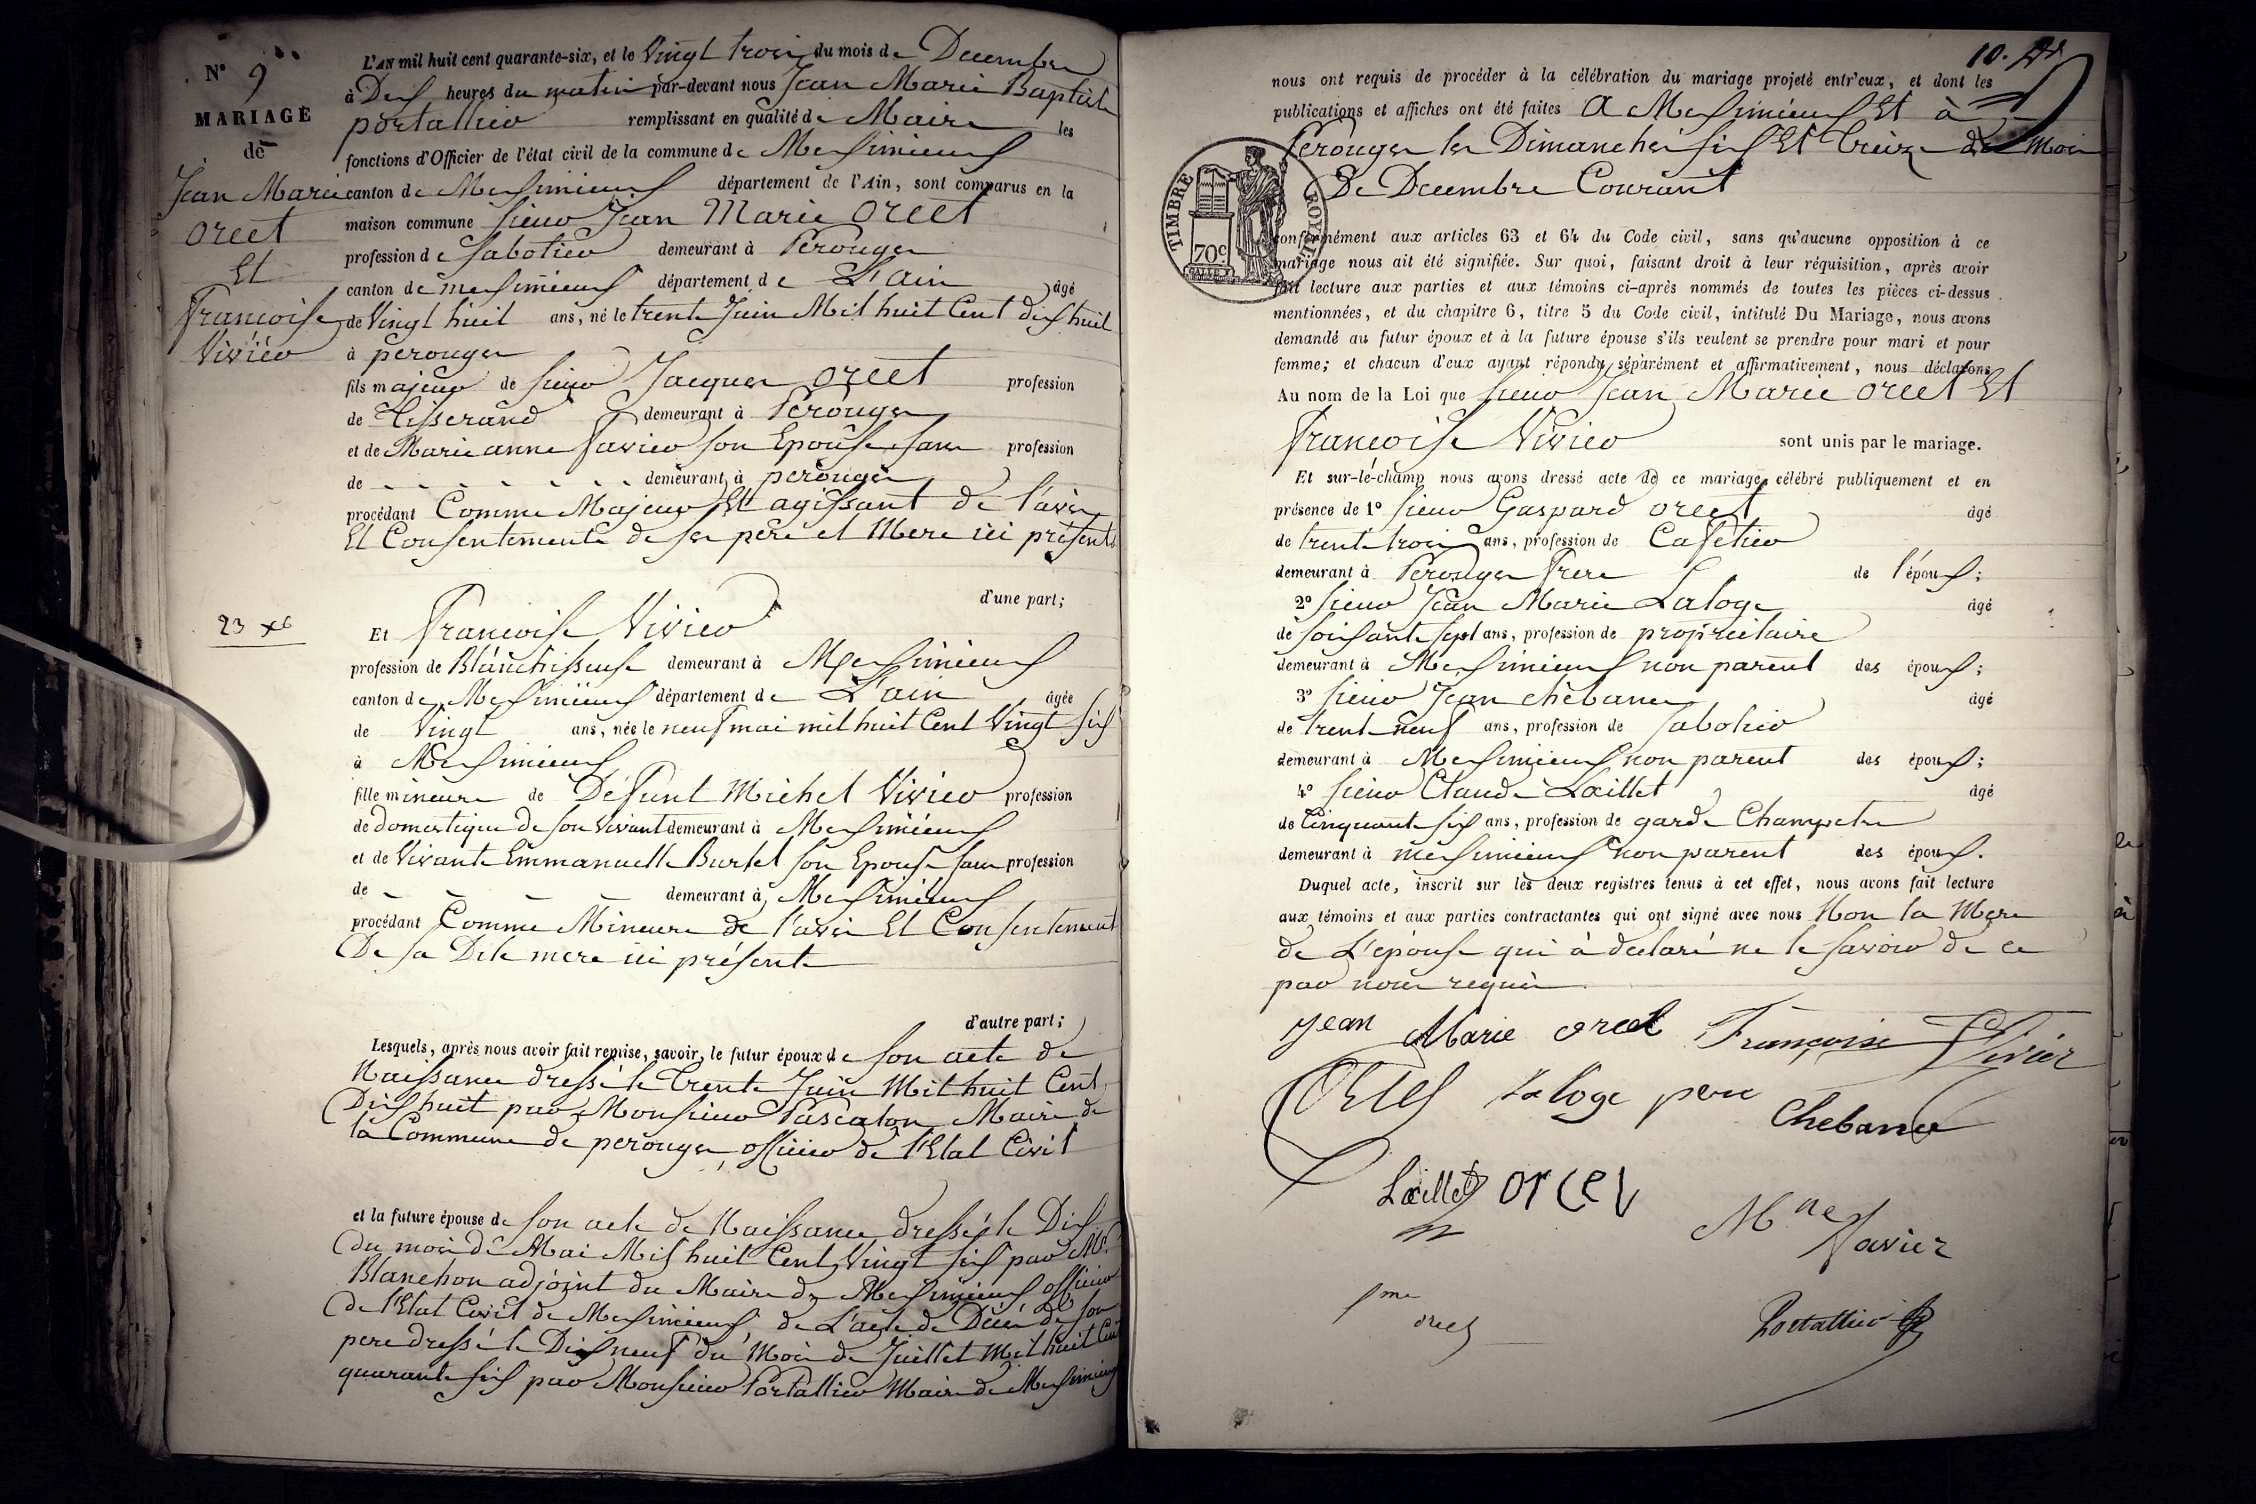 N° 9
MARIAGE
de
Jean Marie
Orcet
Et
Francoise
Vivier
23 Xb
L'AN mil huit cent quarante-six, et le Vingt trois du mois de Decembre
à Dix heures du matin par-devant nous Jean Marie Baptiste
portallier remplissant en qualité de Maire les
fonctions d'Officier de l'état civil de la commune de Meximieux
canton de Meximieux département de l'Ain, sont comparus en la
maison commune sieur Jean Marie Orcet
profession de Sabotier demeurant à Perouges
canton de meximieux département de L'ain âgé
de Vingt huit ans, né le trente Juin Mil huit Cent dix huit
à perouges
fils majeur de sieur Jacques Orcet profession
de Tisserand demeurant à Pérouges
et de Marie anne Javier son Epouse sans profession
de demeurant à pérouges
procédant Comme Majeur Et agissant de l'avis
Et Consentement de ses pere et Mere ici présents
d'une part;
Et Francoise Vivier
profession de Blanchisseuse demeurant à Meximieux
canton de Meximieux département de L'ain âgée
de Vingt ans, née le neuf mai mil huit Cent Vingt six
à Meximieux
fille mineure de Défunt Michel Vivier profession
de domestique de son vivant demeurant à Meximieux
et de Vivante Emmanuelle Burtel son Epouse sans profession
de demeurant à Meximieux
procédant Comme Mineure de l'avis Et Consentement
De sa Dite mere ici présente
d'autre part;
Lesquels, après nous avoir fait remise, savoir, le futur époux de son acte de
Naissance dressé le Trente Juin Mil huit Cent
Dix huit par Monsieur Pascalon Maire de
la Commune de perouges officier de l'Etat Civil
et la future épouse de son acte de Naissance dressé le Dix
du mois de Mai Mil huit Cent Vingt six par Mr
Blanchon adjoint du Maire de Meximieux officier
de l'Etat Civil de Meximieux de L'acte de Décés de son
pere dressé le Dix neuf du Mois de Juillet Mil huit Cent
quarante six par Monsieur Portallier Maire de Meximieux
10.
nous ont requis de procéder à la célébration du mariage projeté entr'eux, et dont les
publications et affiches ont été faites A Meximieux Et à
Perouges les Dimanches six Et Treize du Mois
De Decembre Courant
TIMBRE ROYAL
70c
conformément aux articles 63 et 64 du Code civil, sans qu'aucune opposition à ce
mariage nous ait été signifiée. Sur quoi, faisant droit à leur réquisition, après avoir
fait lecture aux parties et aux témoins ci-après nommés de toutes les pièces ci-dessus
mentionnées, et du chapitre 6, titre 5 du Code civil, intitulé Du Mariage, nous avons
demandé au futur époux et à la future épouse s'ils veulent se prendre pour mari et pour
femme; et chacun d'eux ayant répondu séparément et affirmativement, nous déclarons
Au nom de la Loi que sieur Jean Marie Orcet Et
Francoise Vivier sont unis par le mariage.
Et sur-lé-champ nous avons dressé acte de ce mariage, célébré publiquement et en
présence de 1° sieur Gaspard Orcet âgé
de trente trois ans, profession de Cafetier
demeurant à Perouges Frere de l'époux;
2° sieur Jean Marie Laloge âgé
de soixante sept ans, profession de propriétaire
demeurant à Meximieux non parent des époux;
3° sieur Jean Chebance âgé
de trente neuf ans, profession de Sabotier
demeurant à Meximieux non parent des époux;
4° sieur Claude Laillet âgé
de Cinquante six ans, profession de garde Champetre
demeurant à meximieux non parent des époux.
Duquel acte, inscrit sur les deux registres tenus à cet effet, nous avons fait lecture
aux témoins et aux parties contractantes qui ont signé avec nous Non la Mere
de L'épouse qui à declaré ne le savoir de ce
par nous requis
Jean Marie Orcet Françoise Vivier
Orcet Laloge pere
Chebance
Laillet orcet
Mne Javier
orcet
Portallier